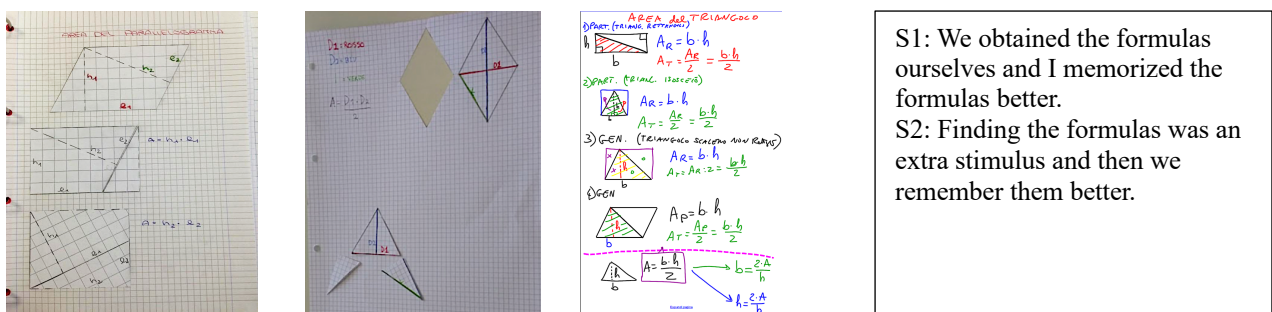 AREA DEL PARALLELOGRAMMA
h1
h2
l2
l1
h1
h2
l2
l1
A = h1 · l1
h1
l1
l2
h2
A = h2 · l2
D1: ROSSO
A = D1 · D2
2
D2
D1
D2
D1
AREA del TRIANGOLO
1) PART. (TRIANG. RETTANGOLI)
h
b
AR = b · h
AT = AR/2 = b·h/2
2) PART. (TRIANG. ISOSCELE)
h
b
AR = b · h
AT = AR/2 = b·h/2
3) GEN. (TRIANGOLO SCALENO NON RETTANG)
x
x
h
o
o
b
AR = b · h
AT = AR:2 = b·h/2
4) GEN
h
b
AP = b · h
AT = AP/2 = b·h/2
h
b
A = b·h/2
b = 2·A/h
h = 2·A/b
S1: We obtained the formulas
ourselves and I memorized the
formulas better.
S2: Finding the formulas was an
extra stimulus and then we
remember them better.